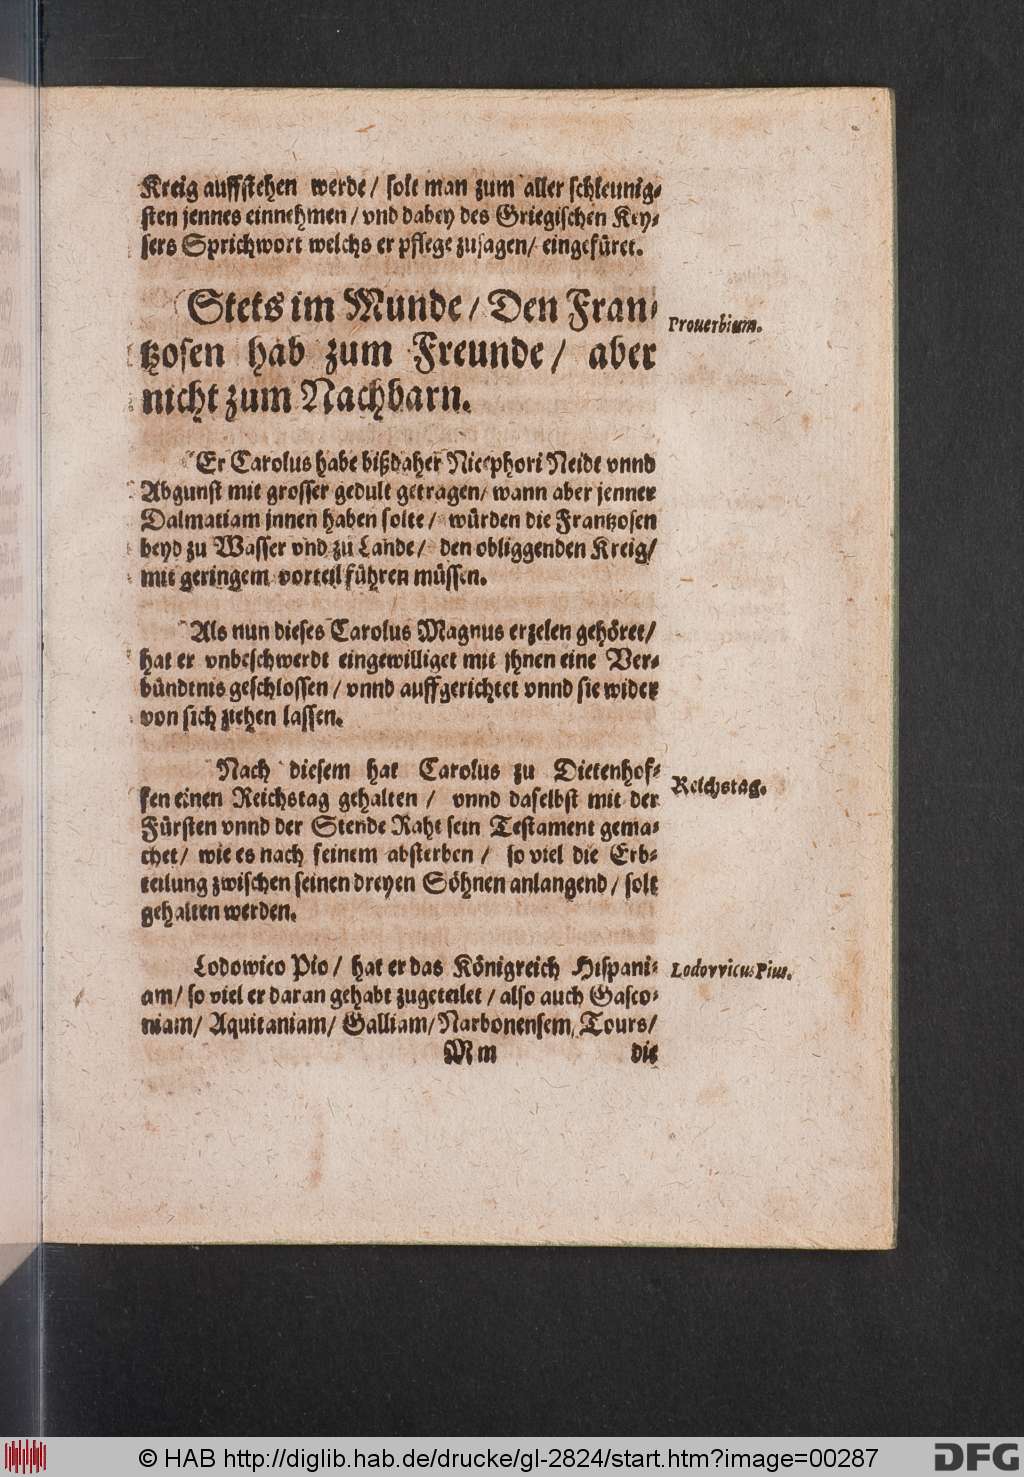 Kreig auffstehen werde / solt man zum aller schleunig-
sten jennes einnehmen / vnd dabey des Griegischen Key-
sers Sprichwort welchs er pflege zusagen / eingefüret.
Stets im Munde / Den Fran-
tzosen hab zum Freunde / aber
nicht zum Nachbarn.
Prouerbium.
Er Carolus habe bißdaher Nicephori Neidt vnnd
Abgunst mit grosser gedult getragen / wann aber jenner
Dalmatiam jnnen haben solte / würden die Frantzosen
beyd zu Wasser vnd zu Lande / den obliggenden Kreig /
mit geringem vorteil führen müssen.
Als nun dieses Carolus Magnus erzelen gehöret /
hat er vnbeschwerdt eingewilliget mit jhnen eine Ver-
bündtnis geschlossen / vnnd auffgerichtet vnnd sie wider
von sich ziehen lassen.
Nach diesem hat Carolus zu Dietenhof-
fen einen Reichstag gehalten / vnnd daselbst mit der
Fürsten vnnd der Stende Raht sein Testament gema-
chet / wie es nach seinem absterben / so viel die Erb-
teilung zwischen seinen dreyen Söhnen anlangend / solt
gehalten werden.
Reichstag.
Lodowico Pio / hat er das Königreich Hispani-
am / so viel er daran gehabt zugeteilet / also auch Gasco-
niam / Aquitaniam / Galliam / Narbonensem, Tours /
Lodovvicus Pius.
Mm die
© HAB http://diglib.hab.de/drucke/gl-2824/start.htm?image=00287
DFG